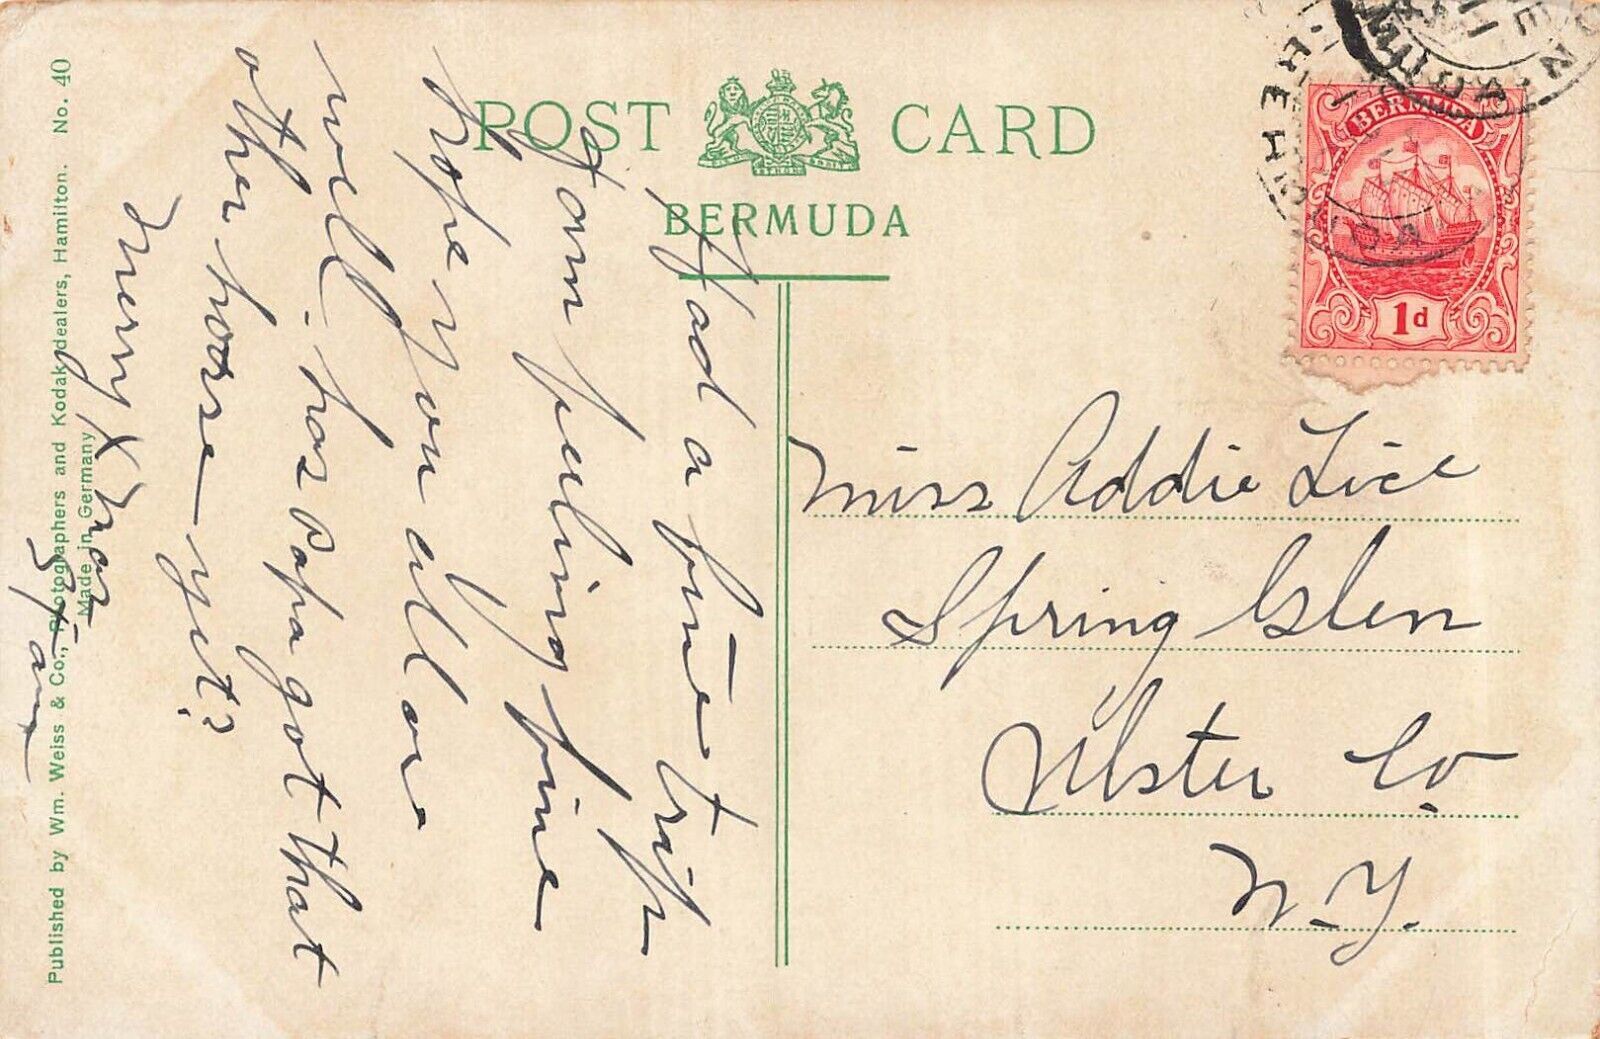 POST CARD
BERMUDA
BERMUDA
1d
Had a fine trip
Gam feeling fine
hope you all are
well. has Papa got that
other horse yet?
Merry Xmas.
Miss Addie Lice
Spring Glen
Ulster Co
N.Y.
Published by Wm. Weiss & Co., Photographers and Kodak dealers, Hamilton. No. 40
Made in Germany